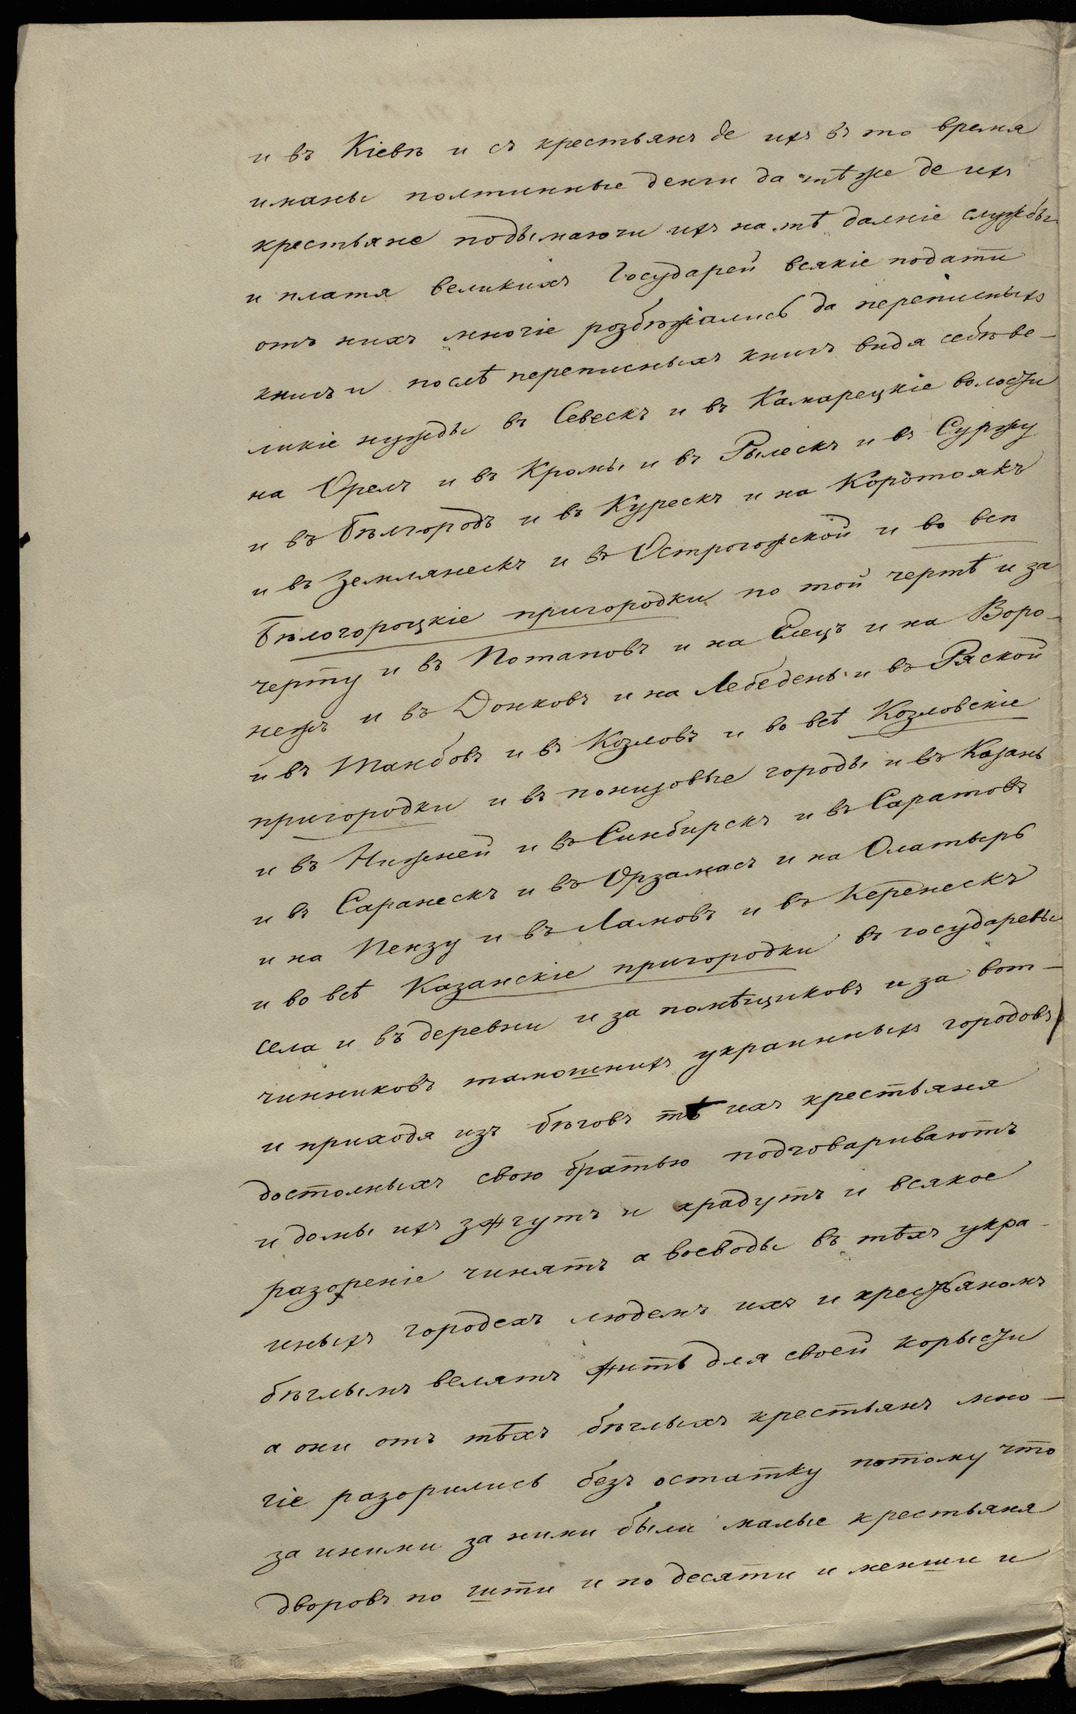 и въ Кіевѣ и съ крестьянъ де ихъ въ то время
иманы полтинные денги да тѣже де ихъ
крестьяне подымаючи ихъ на тѣ далніе службы
и платя великихъ Государей всякіе подати
отъ нихъ многіе розбѣжались до переписныхъ
книгъ и послѣ переписныхъ книгъ видя себѣ ве-
ликіе нужды въ Севескъ и въ Камарецкіе волости
на Орелъ и въ Кромы и въ Рылескъ и въ Суржу
и въ Бѣлгородъ и въ Курескъ и на Коротоякъ
и въ Землянескъ и въ Острогожской и во всѣ
Бѣлогороцкіе пригородки по той чертѣ и за
черту и въ Потаповъ и на Елецъ и на Воро-
нежъ и въ Донковъ и на Лебедень и въ Ряской
и въ Танбовъ и въ Козловъ и во всѣ Козловскіе
пригородки и въ понизовые городы и въ Казань
и въ Нижней и въ Синбирскъ и въ Саратовъ
и въ Саранескъ и въ Орзамасъ и на Олатырь
и на Пензу и въ Ламовъ и въ Керенескъ
и во всѣ Казанскіе пригородки въ государевы
села и въ деревни и за помѣщиковъ и за вот-
чинниковъ тамошнихъ украинныхъ городовъ
и приходя изъ бѣговъ тѣ ихъ крестьяня
достолныхъ свою братью подговариваютъ
и домы ихъ зжгутъ и крадутъ и всякое
разореніе чинятъ а воеводы въ тѣхъ укра-
иныхъ городехъ людемъ ихъ и крестьяномъ
бѣглымъ велятъ жить для своей корысти
а они отъ тѣхъ бѣглыхъ крестьянъ мно-
гіе разорились безъ остатку потому что
за иними за ними были малые крестьяня
дворовъ по шти и по десяти и менши и